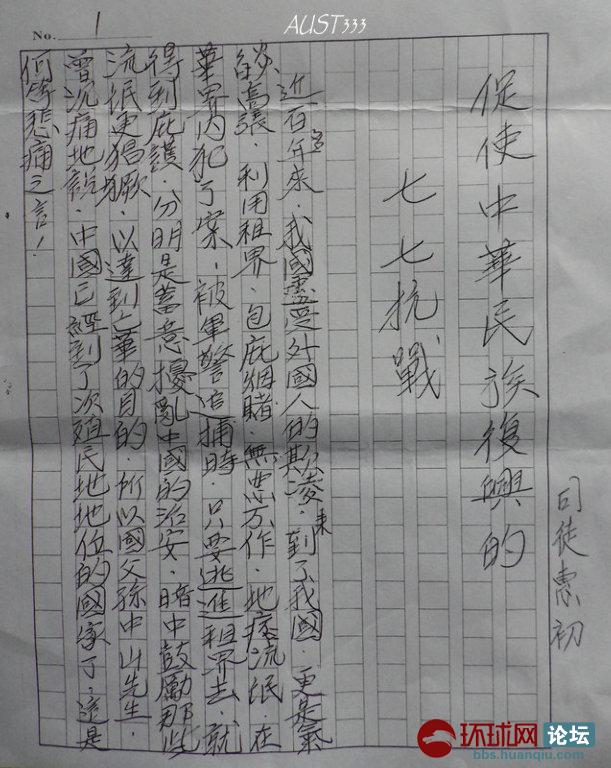 No. 1
AUST333
司徒惠初
促使中華民族復興的
七七抗戰
近百多年來，我國盡受外國人的欺凌，來到了我國，更是氣
燄高張，利用租界，包庇賭，無惡不作，地痞流氓，在
華界內犯了案，被軍警追捕時，只要逃進租界去，就
得到庇護，分明是蓄意擾亂中國的治安，暗中鼓勵那些
流氓更猖獗，以達到亡華的目的，所以國父孫中山先生，
曾沉痛地說，中國已經到了次殖民地地位的國家了，這是
何等悲痛之言！
环球网 论坛
bbs.huanqiu.com